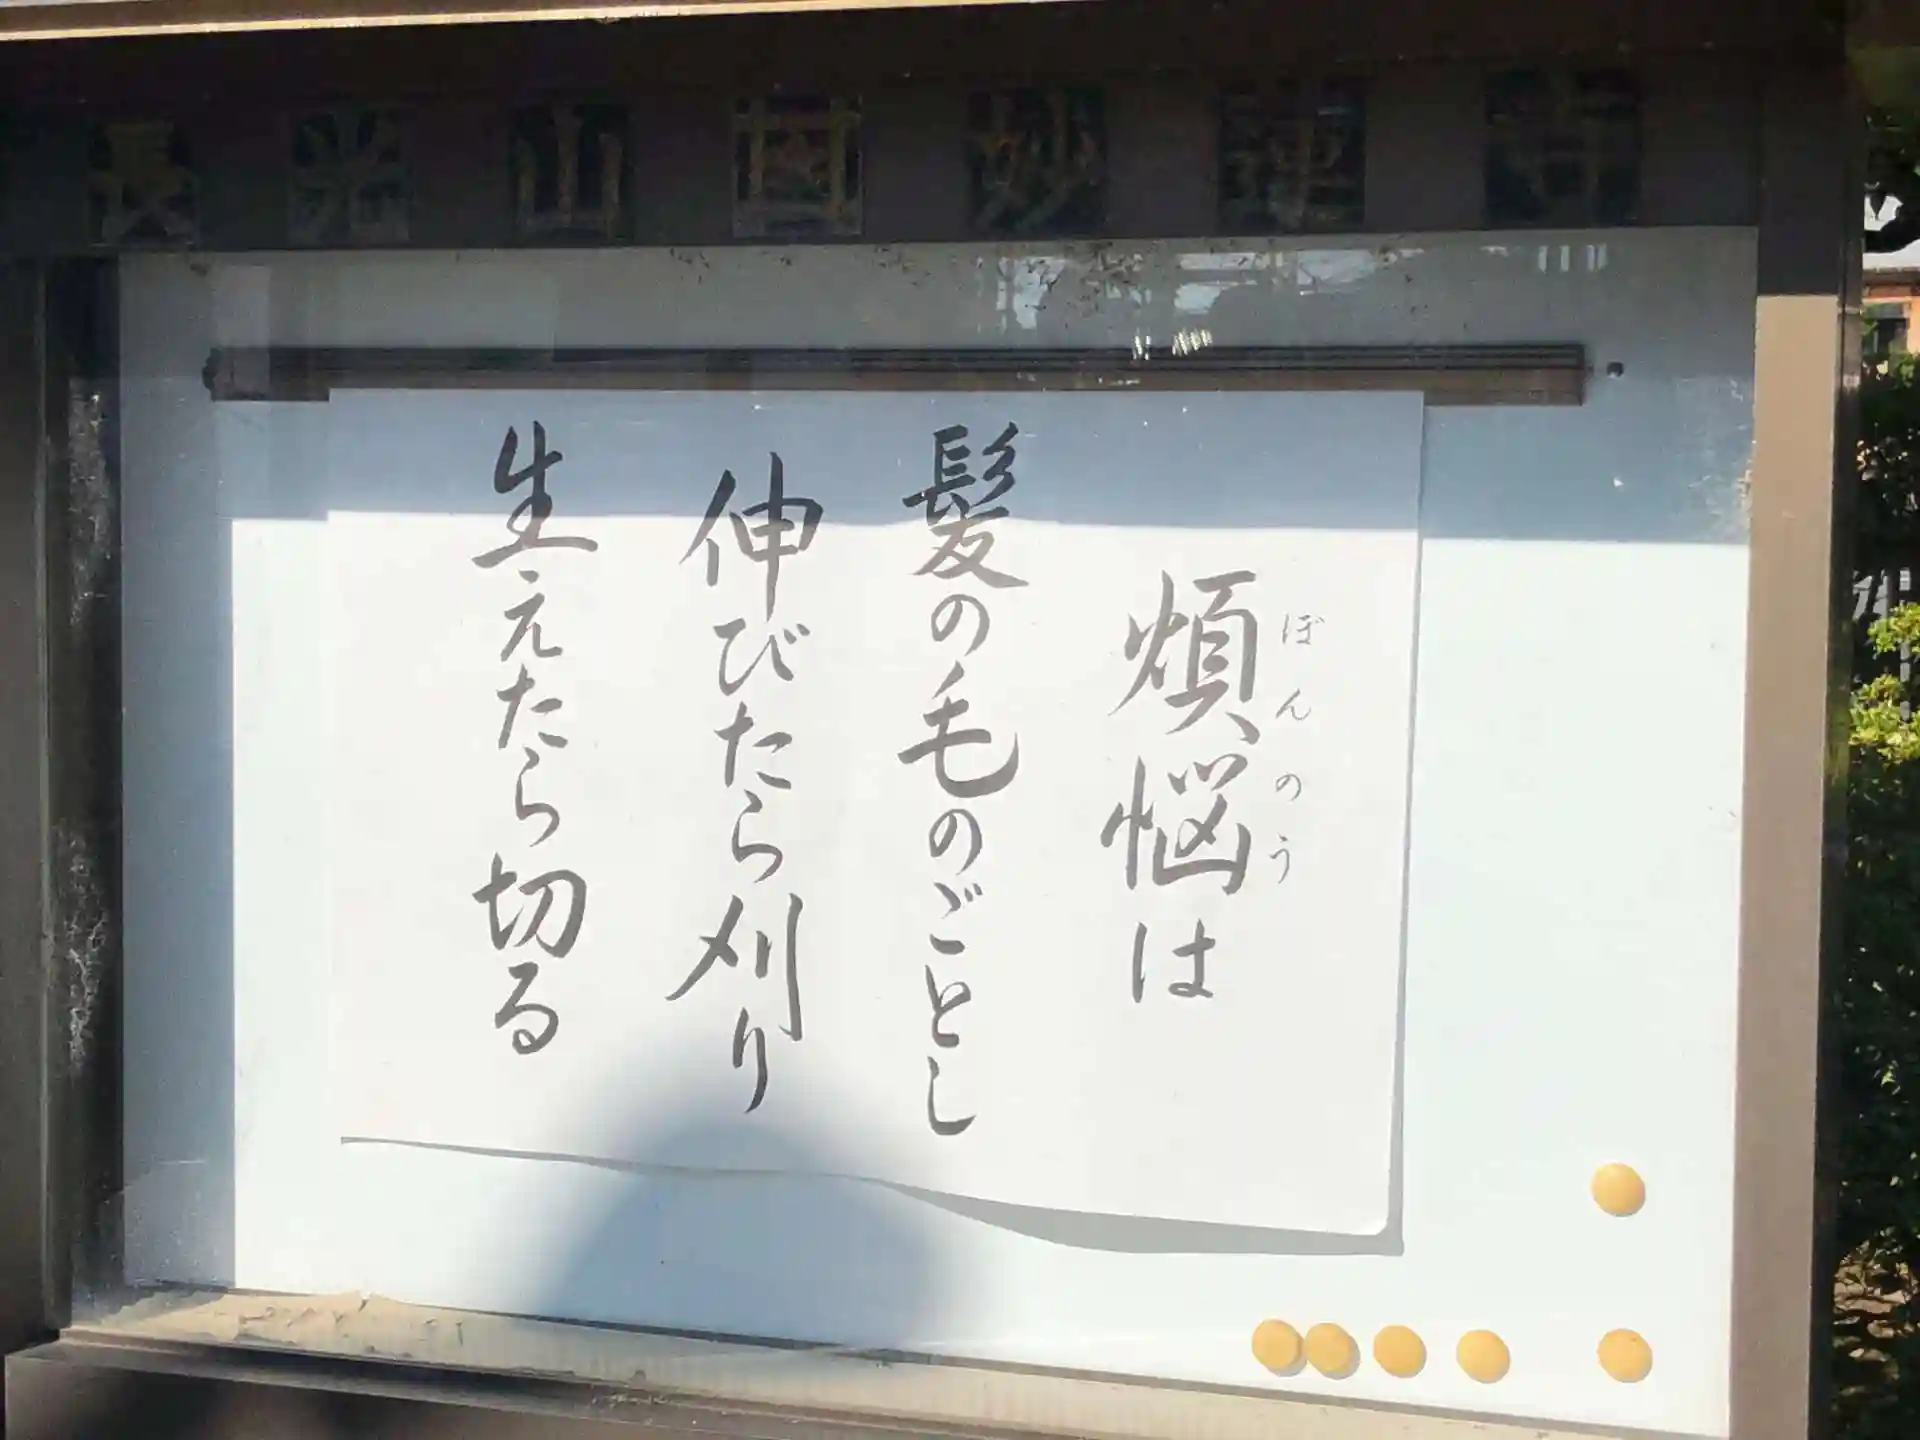 長光山圓妙蓮寺
煩悩は
ぼんのう
髪の毛のごとし
伸びたら刈り
生えたら切る